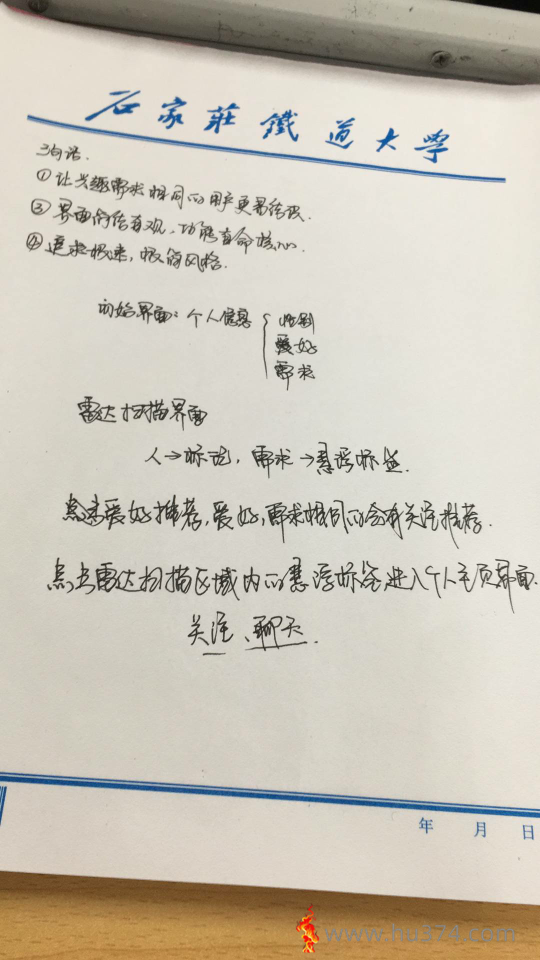 石家莊鐵道大學
3句话.
①让兴趣需求相同的用户更易结识.
②界面简洁直观,功能直命核心.
③追求极速,极简风格.
初始界面:个人信息
性别
爱好
需求
雷达扫描界面
人→标记,需求→悬浮标签.
点击爱好推荐,爱好,需求相同的会有关注推荐.
点击雷达扫描区域内的悬浮标签,进入个人主页界面.
关注、聊天.
年 月 日
www.hu374.com